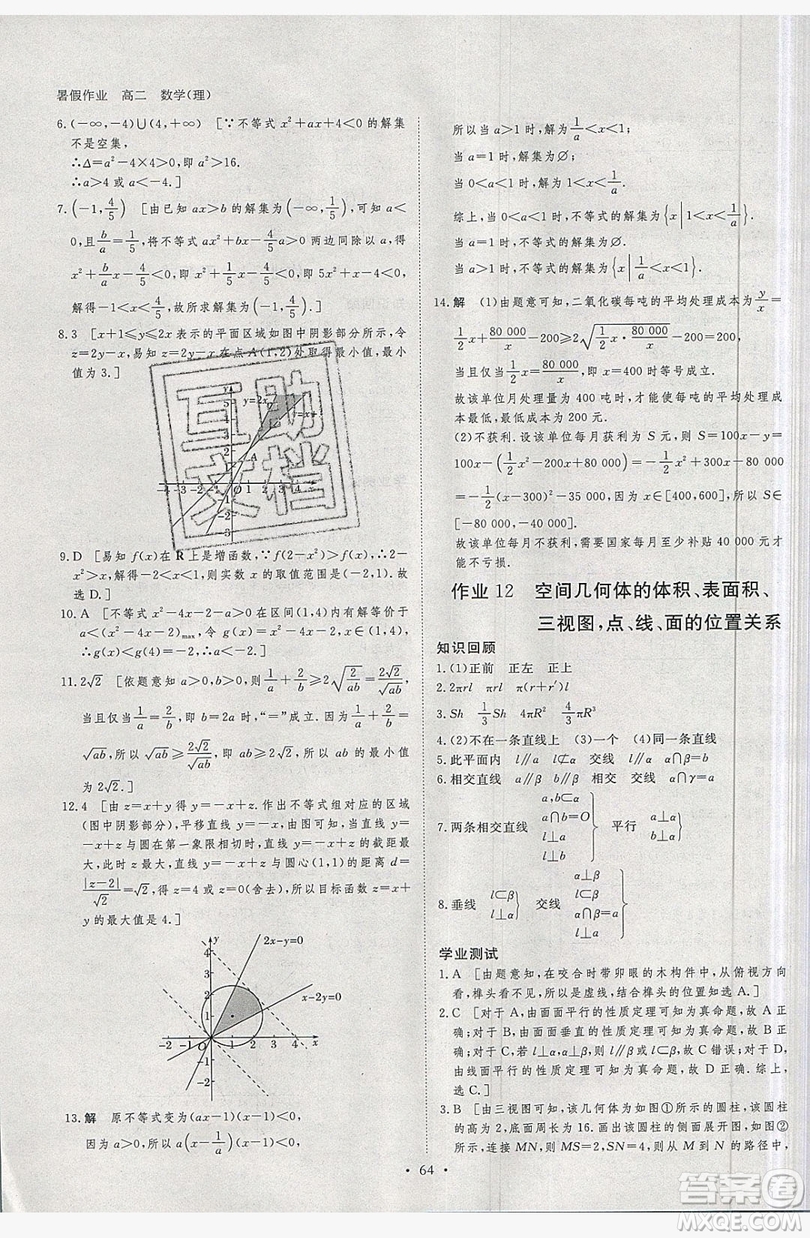 暑假作业 高二 数学(理)
6.(-∞,-4)∪(4,+∞) [∵不等式 x²+ax+4<0 的解集
不是空集,
∴Δ=a²-4×4>0,即 a²>16.
∴a>4 或 a<-4.]
7.(-1,4/5) [由已知 ax>b 的解集为(-∞,1/5),可知 a<
0,且 b/a=1/5,将不等式 ax²+bx-4/5a>0 两边同除以 a,得
x²+b/a x-4/5<0,即 x²+1/5x-4/5<0,即 5x²+x-4<0,
解得-1<x<4/5,故所求解集为(-1,4/5).]
8.3 [x+1≤y≤2x 表示的平面区域如图中阴影部分所示,令
z=2y-x,易知 z=2y-x 在点 A(1,2)处取得最小值,最小
值为 3.]
y
y=2x
y=x+1
A
-2 -1 O 1 2 3 4 x
9.D [易知 f(x)在 R 上是增函数,∵f(2-x²)>f(x),∴2-
x²>x,解得-2<x<1,则实数 x 的取值范围是(-2,1),故
选 D.]
10.A [不等式 x²-4x-2-a>0 在区间(1,4)内有解等价于
a<(x²-4x-2)max,令 g(x)=x²-4x-2,x∈(1,4),
∴g(x)<g(4)=-2,∴a<-2.]
11.2√2 [依题意知 a>0,b>0,则 1/a+2/b≥2√(2/ab)=2√2/√ab,
当且仅当 1/a=2/b,即 b=2a 时,“=”成立.因为 1/a+2/b=
√ab,所以 √ab≥2√2/√ab,即 ab≥2√2,所以 ab 的最小值为
2√2.]
12.4 [由 z=x+y 得 y=-x+z.作出不等式组对应的区域
(图中阴影部分),平移直线 y=-x+z,由平移可知,当直线
y=-x+z 与圆在第一象限相切时,直线 y=-x+z 的截距
最大,此时 z 最大.直线 y=-x+z 与圆心(1,4)的距离 d=
|z-2|/√2=√2,即 z=4 或 z=0(舍去),所以目标函数 z=x+
y 的最大值是 4.]
y
2x-y=0
x-2y=0
-2 -1 O 1 2 3 4 x
13.解 原不等式变为(ax-1)(x-1)<0,
因为 a>0,所以 a(x-1/a)(x-1)<0,
所以当 a>1 时,解集为 1/a<x<1;
当 a=1 时,解集为∅;
当 0<a<1 时,解集为 1<x<1/a.
综上,当 0<a<1 时,不等式的解集为{x|1<x<1/a};
当 a=1 时,不等式的解集为∅;
当 a>1 时,不等式的解集为{x|1/a<x<1}.
14.解 (1)由题意可知,二氧化碳每吨的平均处理成本为 y/x=
1/2x+80 000/x-200≥2√(1/2x·80 000/x)-200=200,
当且仅当 1/2x=80 000/x,即 x=400 时,等号成立,
故该单位月处理量为 400 吨时,才能使每吨的平均处理成
本最低,最低成本为 200 元.
(2)不获利.设该单位每月获利为 S 元,则 S=100x-y=
100x-(1/2x²-200x+80 000)=-1/2x²+300x-80 000
=-1/2(x-300)²-35 000,因为 x∈[400,600],所以 S∈
[-80 000,-40 000].
故该单位每月不获利,需要国家每月至少补贴 40 000 元才
能不亏损.
作业 12 空间几何体的体积、表面积、
三视图,点、线、面的位置关系
知识回顾
1.(1)正前 正左 正上
2.2πrl πrl π(r+r′)l
3.Sh 1/3Sh 4πR² 4/3πR³
4.(2)不在一条直线上 (3)一个 (4)同一条直线
5.此平面内 l∥a l⊄α 交线 l∥α α∩β=b
6.相交直线 a∥β b∥β 交线 α∥β
7.两条相交直线 a,b⊂α a∩b=O l⊥a l⊥b 平行 a⊥α b⊥α
8.垂线 l⊂β l⊥α 交线 α⊥β l⊂β α∩β=a l⊥a
学业测试
1.A [由题意知,在咬合时带卯眼的木构件中,从俯视方向看,
榫头看不见,所以是虚线,结合榫头的位置知选 A.]
2.C [对于 A,由面面平行的性质定理可知为真命题,故 A 正
确;对于 B,由面面垂直的性质定理可知为真命题,故 B 正
确;对于 C,若 l⊥α,α⊥β,则 l∥β 或 l⊂β,故 C 错误;对于 D,
由线面平行的性质定理可知为真命题,故 D 正确.综上,
选 C.]
3.B [由三视图可知,该几何体为如图①所示的圆柱,该圆柱
的高为 2,底面周长为 16.画出该圆柱的侧面展开图,如图②
所示,连接 MN,则 MS=2,SN=4,则从 M 到 N 的路径中,
• 64 •
互助
文档
答案圈
MXQE.COM